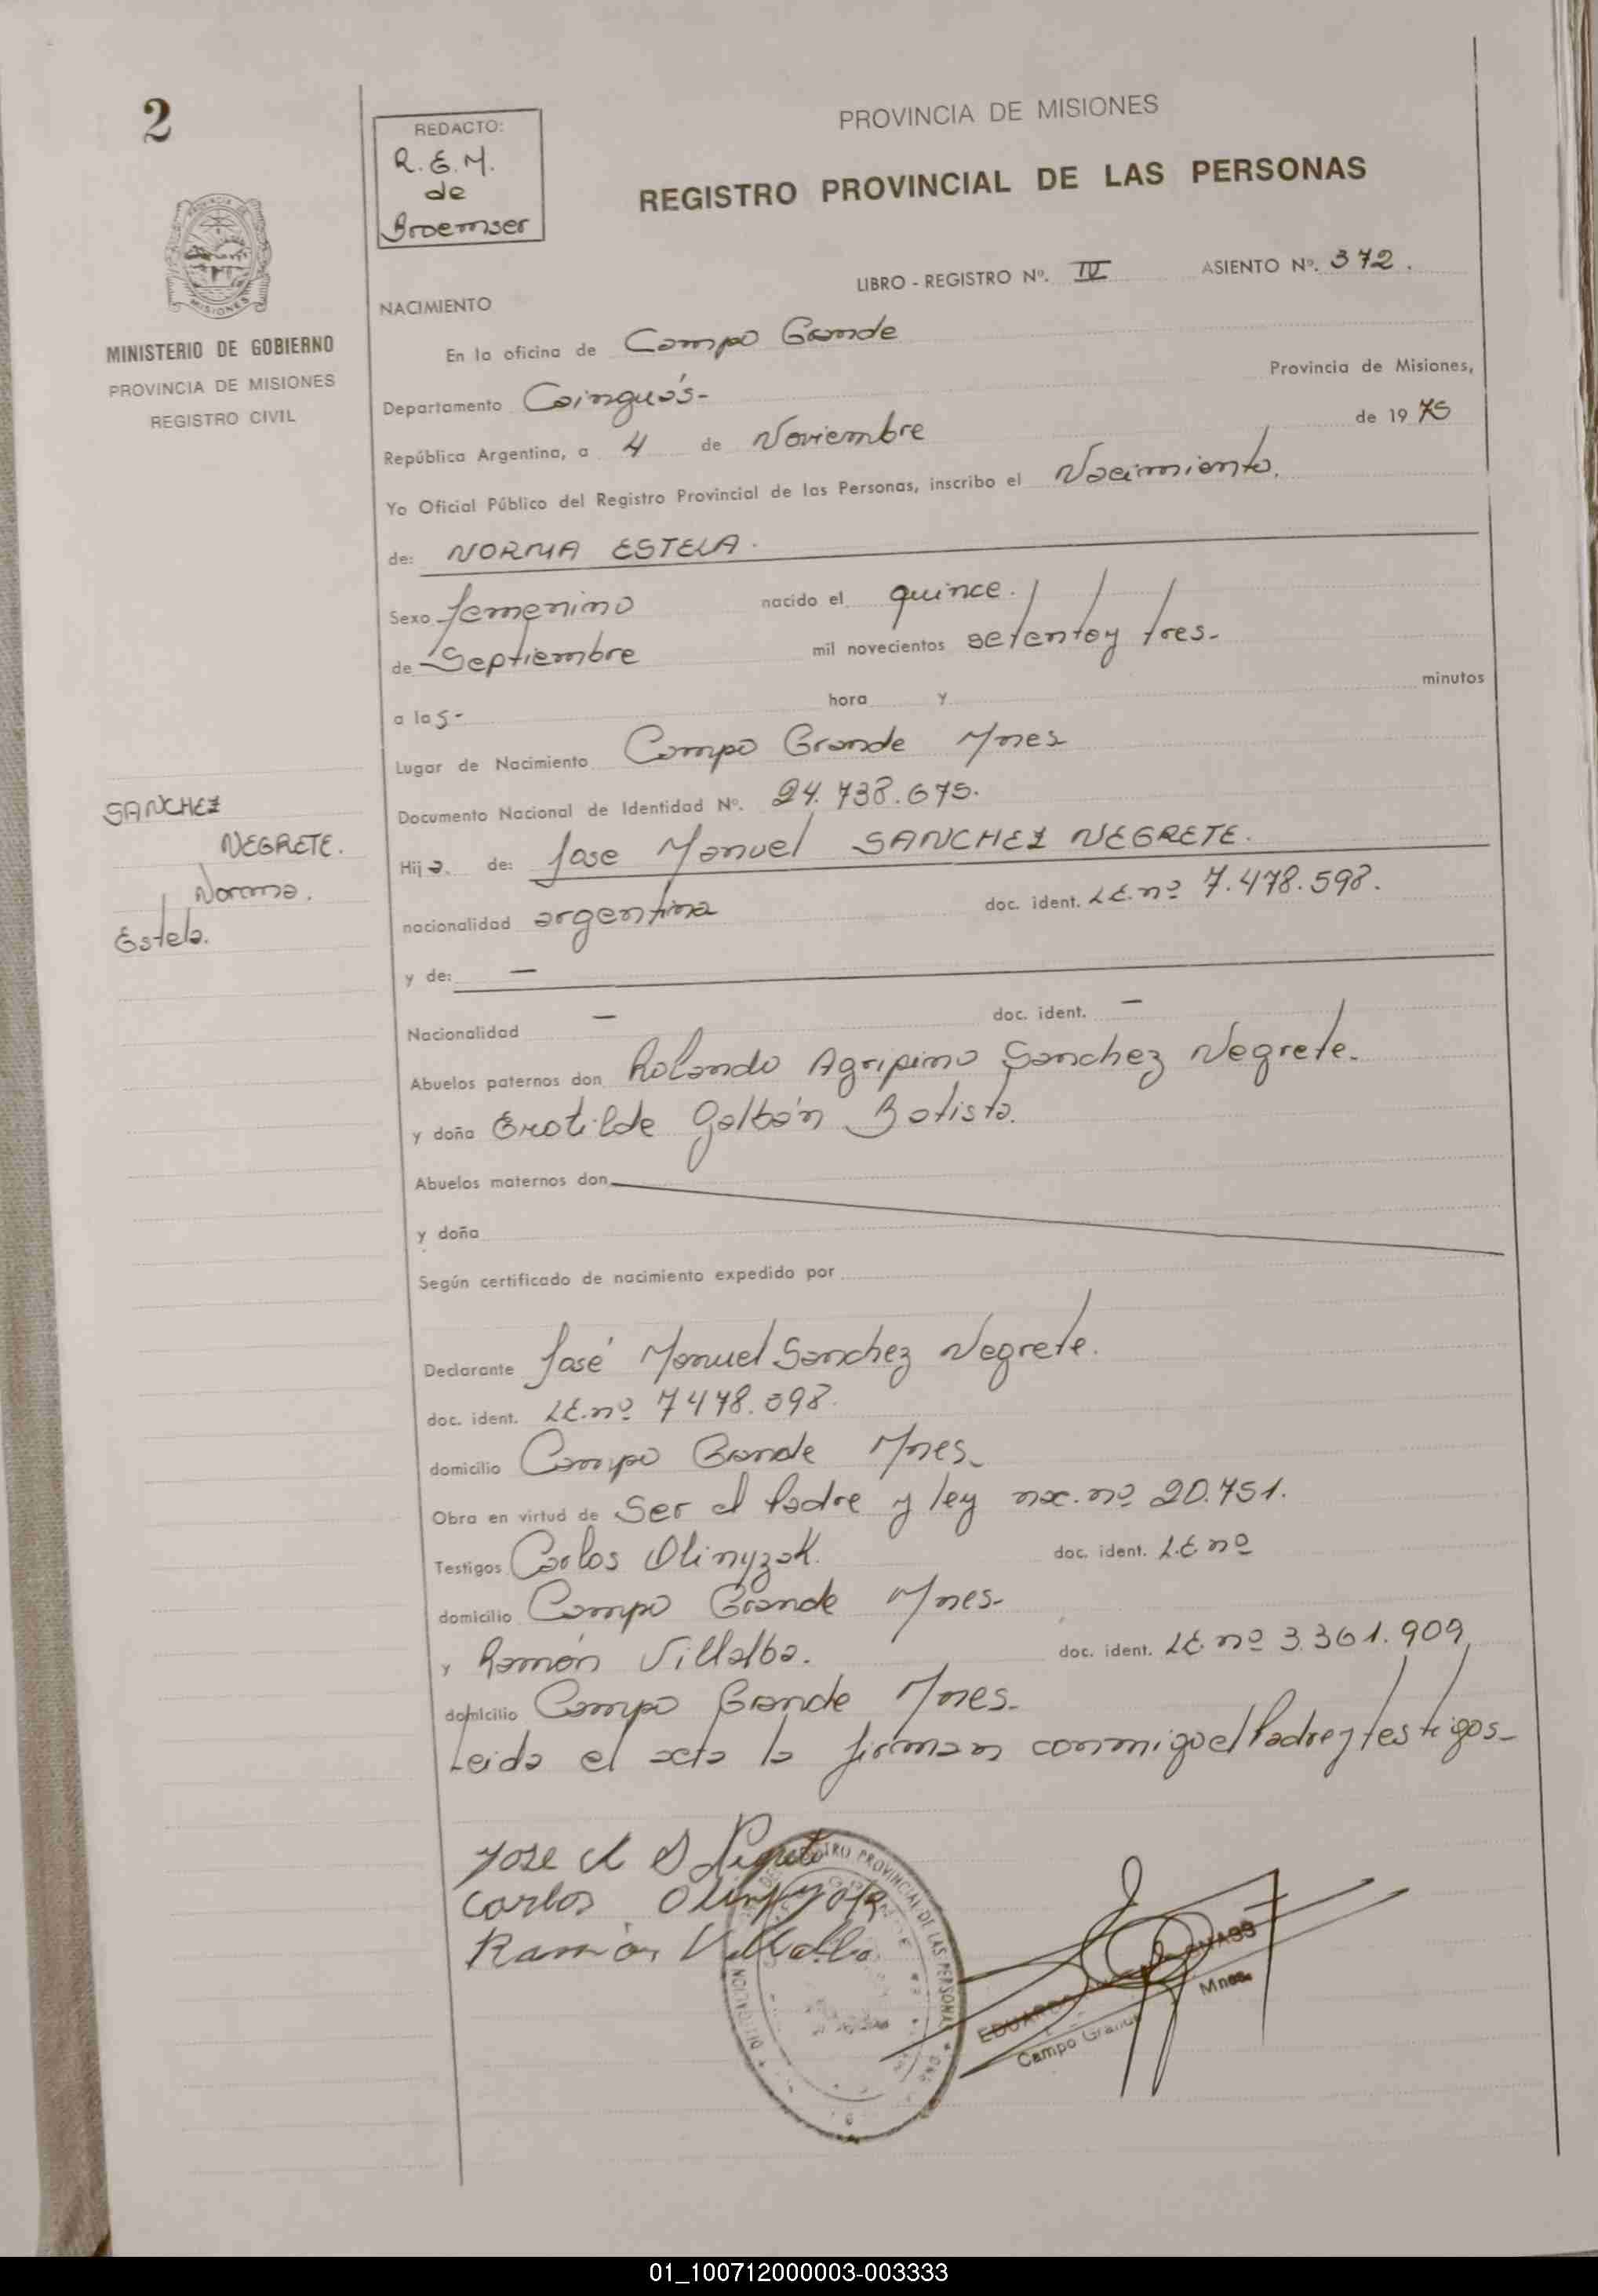 2
REDACTO:
R.E.M.
de
Broemser
PROVINCIA DE MISIONES
REGISTRO PROVINCIAL DE LAS PERSONAS
LIBRO - REGISTRO Nº. IV ASIENTO Nº. 372.
MINISTERIO DE GOBIERNO
PROVINCIA DE MISIONES
REGISTRO CIVIL
NACIMIENTO
En la oficina de Campo Grande
Departamento Cainguás- Provincia de Misiones,
República Argentina, a 4 de Noviembre de 1975
Yo Oficial Público del Registro Provincial de las Personas, inscribo el Nacimiento.
de: NORMA ESTELA.
Sexo femenino nacido el quince.
de Septiembre mil novecientos setentay tres-
a las- hora y minutos
Lugar de Nacimiento Campo Grande Mnes
Documento Nacional de Identidad Nº. 24.738.675.
SANCHEZ
NEGRETE.
Norma.
Estela.
Hija. de: Jose Manuel SANCHEZ NEGRETE.
nacionalidad argentina doc. ident. LE.nº 7.478.598.
y de: —
Nacionalidad — doc. ident. —
Abuelos paternos don Rolando Agripino Sanchez Negrete.
y doña Erotilde Galbán Batista.
Abuelos maternos don
y doña
Según certificado de nacimiento expedido por
Declarante José Manuel Sanchez Negrete.
doc. ident. LE.nº 7478.598.
domicilio Campo Grande Mnes-
Obra en virtud de Ser el Padre y ley nac. nº 20.751.
Testigos Carlos Olinyzak. doc. ident. L.E nº
domicilio Campo Grande Mnes-
y Ramón Villalba. doc. ident. LE nº 3.361.909
domicilio Campo Grande Mnes-
Leida el acta la firman conmigo el Padre y testigos-
Jose M S Negrete
Carlos
Ramón Villalba
REGISTRO PROVINCIAL DE LAS PERSONAS
EDUARDO
Campo Grande Mnes.
01_100712000003-003333